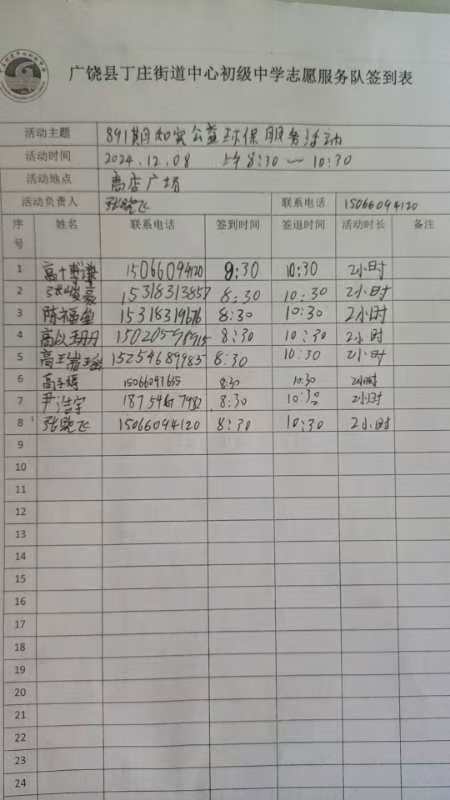 广饶县丁庄街道中心初级中学志愿服务队签到表
活动主题 891期知实公益环保服务活动
活动时间 2024.12.08 上午8:30—10:30
活动地点 商店广场
活动负责人 张晓飞 联系电话 15066094120
序号 姓名 联系电话 签到时间 签退时间 活动时长 备注
1 15066094120 8:30 10:30 2小时
2 15318313857 8:30 10:30 2小时
3 陈福金 15318319676 8:30 10:30 2小时
4 8:30 10:30 2小时
5 15254689985 8:30 10:30 2小时
6 8:30 10:30 2小时
7 尹浩宇 8:30 10:30 2小时
8 张晓飞 15066094120 8:30 10:30 2小时
9
10
11
12
13
14
15
16
17
18
19
20
21
22
23
24